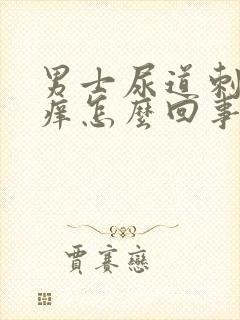 男士尿道刺
痒怎麼回事
賈賽戀